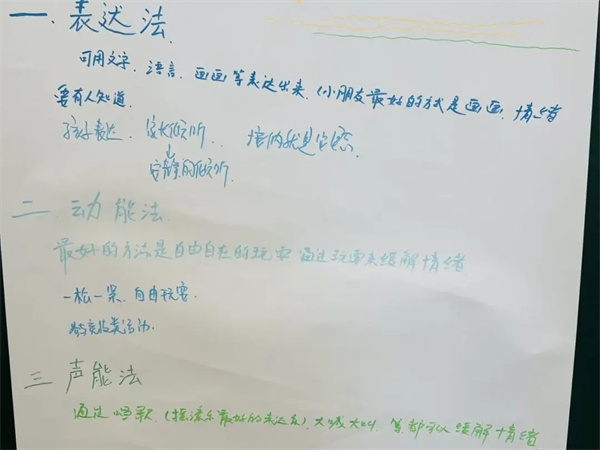 一.表达法.
可用文字、语言、画画等表达出来.(小朋友最好的方式是画画,情绪
要有人知道.
孩子表达. 家长倾听.. 接纳就是
安静的倾听.
二.动能法.
最好的方法是自由自在的玩耍 通过玩耍来缓解情绪
一松一紧.自由玩耍.
活动.
三 声能法
通过唱歌.(摇滚乐最好的表达) 大喊大叫.等都可以缓解情绪